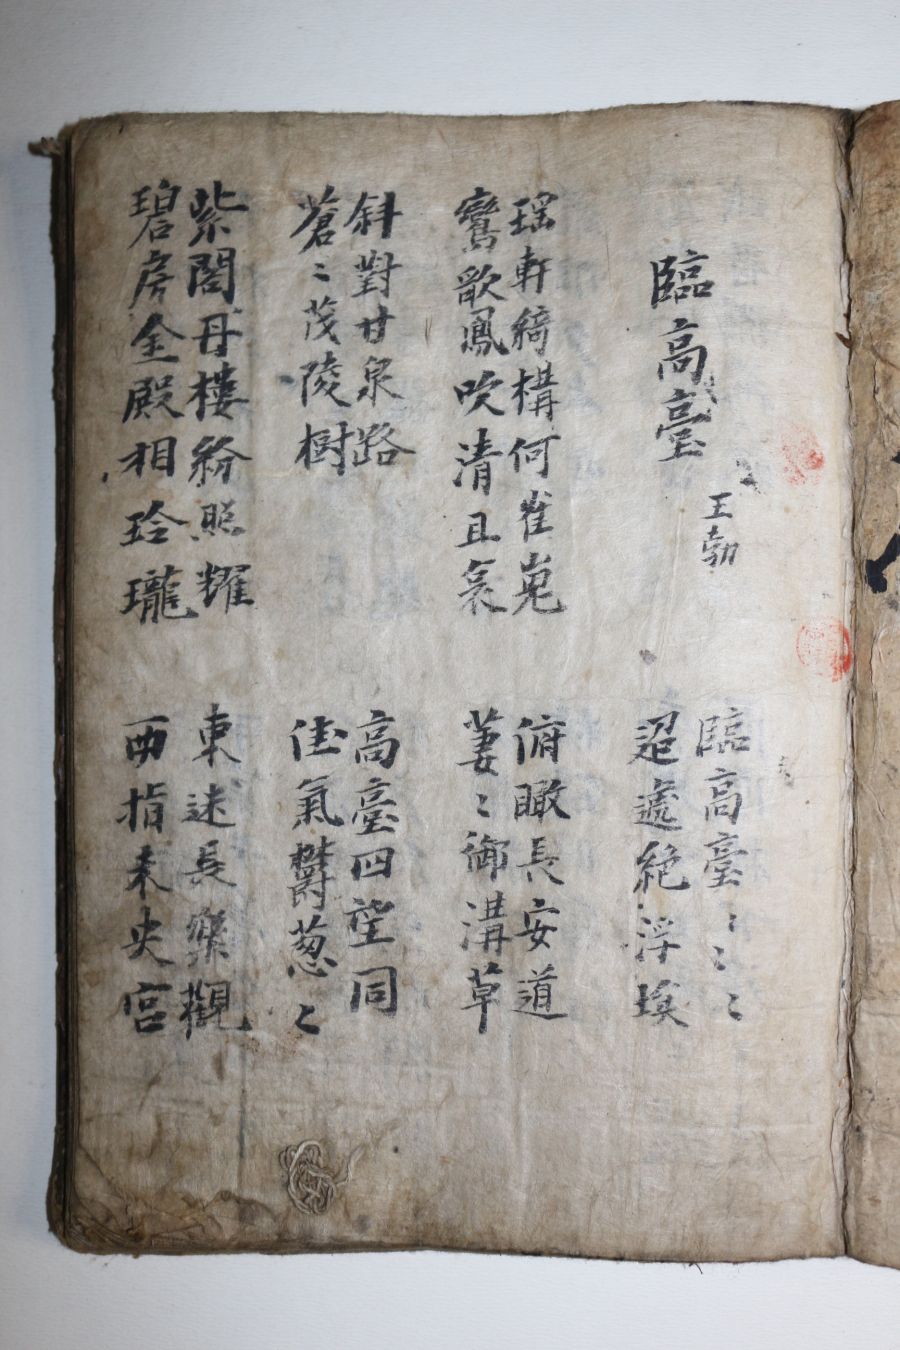 臨高臺
王勃
臨高臺〻〻〻
迢遞絶浮埃
瑶軒綺構何崔嵬
鸞歌鳳吹清且哀
俯瞰長安道
萋〻御溝草
斜對甘泉路
蒼〻茂陵樹
高臺四望同
佳氣欝葱〻
紫閣丹樓紛照耀
碧房金殿相玲瓏
東迷長樂觀
西指未央宮